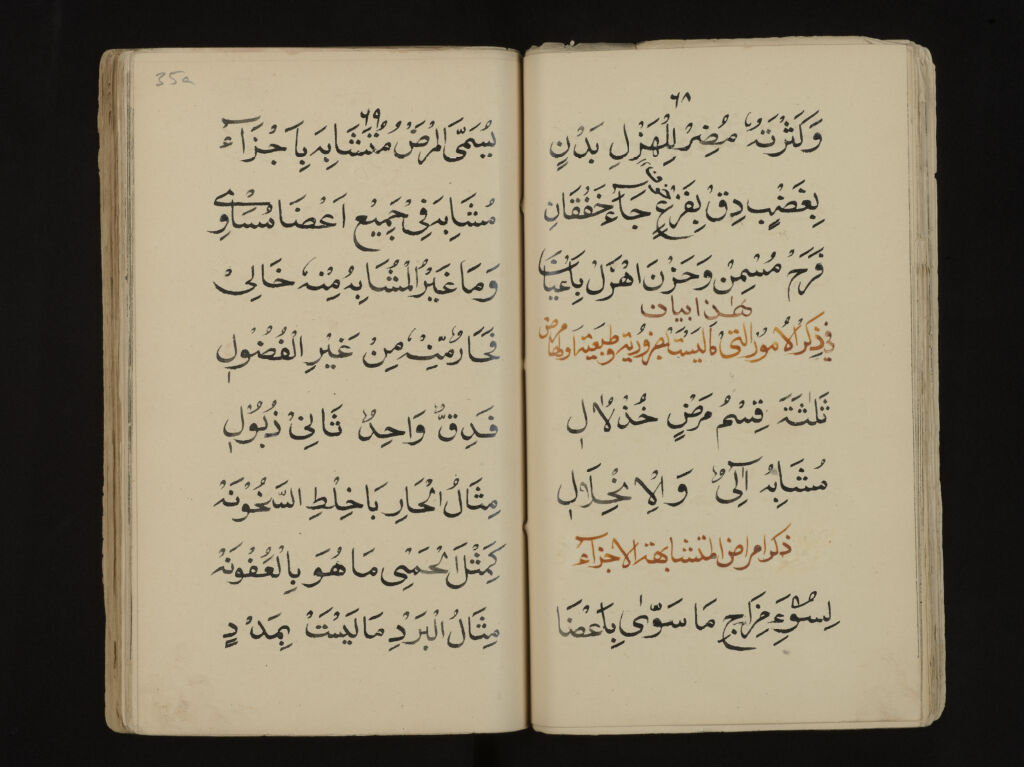 ٦٨
وَكَثْرَتَهُ مُضِرٌ لِلْهَزْلِ بَدْنٍ
بِغَضْبٍ دِقْ بِفَزْعٍ جَآءَ خَفْقَانِ
فَرَحْ مُسْمِنْ وَحَزْنَ اهْزَلْ بِاَعْيَانْ
هٰذا بيان
في ذِكر الامور التي ليست بضرورية وطبعية اولها مرض
ثَلٰثَةَ قِسْمُ مَرَضٍ خُذْ لَالِ
مُشَابِهُ آلِىُّ وَالاِنْحِلَالِ
ذكر امراض المتشابهة الاجزآء
لِسُوْءِ مِزَاجٍ مَا سَوّٰى بِاَعْضَا
35a
٦٩
يُسَمَّى الْمَرَضْ مُتَشَابِهَ بِاَجْزَآءَ
مُشَابِهَ فِىْ جَمِيْعِ اَعْضَا مُسَاوِىْ
وَمَا غَيْرُ الْمُشَابِهُ مِنْهُ خَالِىْ
فَحَارٌ مِّنْهُ مِنْ غَيْرِ الْفُضُولِ
فَدِقٌّ وَاحِدٌ ثَانِىْ ذُبُوْلِ
مِثَالُ الْحَارِ بَاخِلْطِ السَّخُوْنَهْ
كَمِثْلِ الْحَمْىِ مَا هُوَ بِالْعُفُوْنَهْ
مِثَالُ الْبَرْدِ مَا لَيْسَتْ بِمَدْدٍ